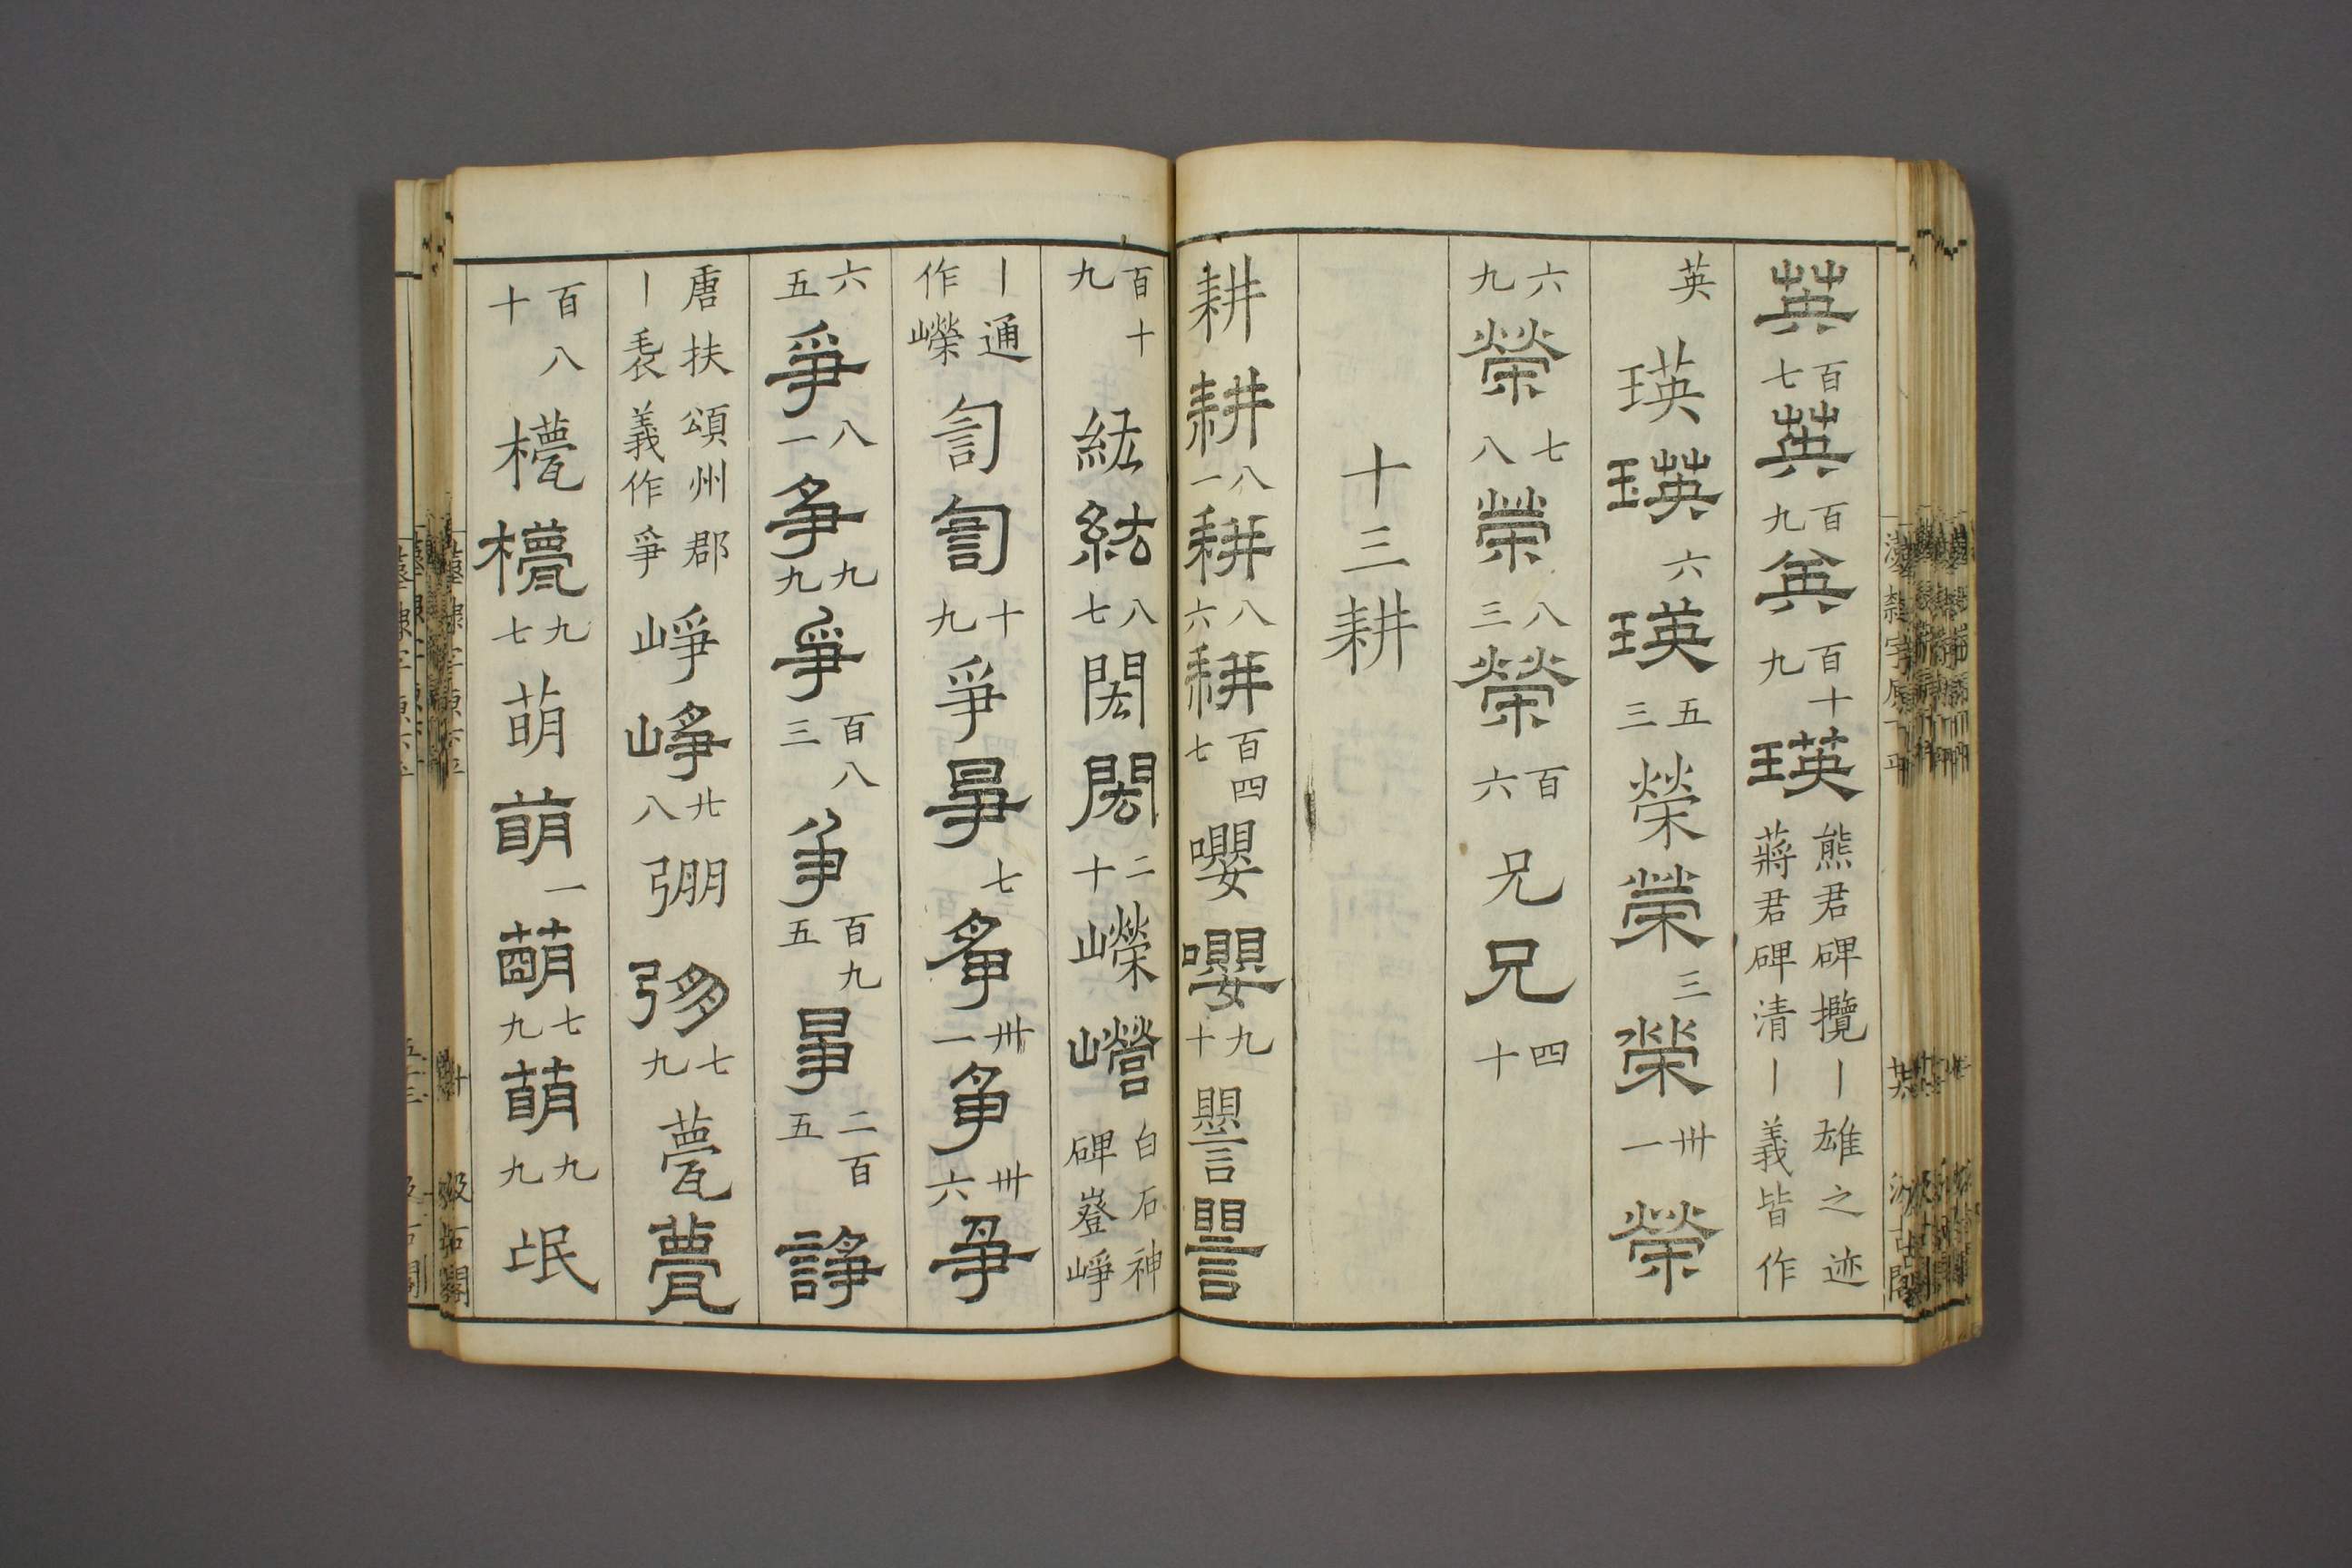 英百七英百九英百十九瑛熊君碑攬丨雄之迹蔣君碑清丨義皆作
英瑛瑛六瑛五三榮榮三榮卅一榮
六九榮七八榮八三榮百六兄兄四十
十三耕
耕耕八一耕八六耕百四七嚶嚶九十譻譻
百十九紘紘八七閎閎二十嶸嶸白石神碑嵳崢
丨通作嶸訇訇十九爭爭七爭卅一爭卅六爭
六五爭八一爭九九爭百八三爭百九五爭二百五諍
唐扶頌州郡丨裘義作爭崢崢廿八弸弸七九甍甍
百八十橂九七萌萌一萌七九萌九九氓
漢隸字原 平 汲古閣